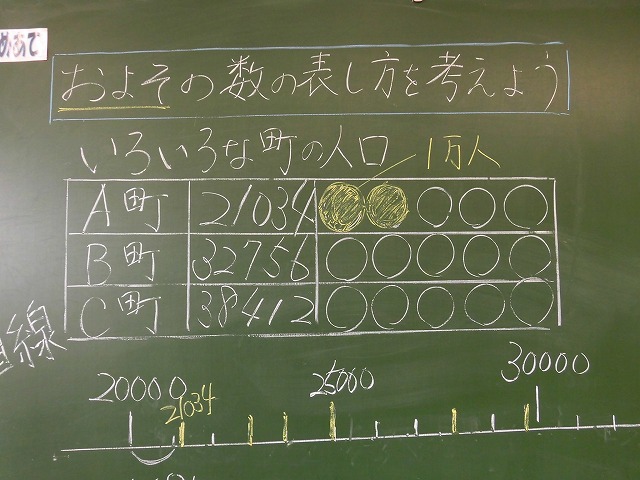 めあて
およその数の表し方を考えよう
いろいろな町の人口
1万人
A町 21034
B町 32756
C町 38412
線
20000 21034 25000 30000